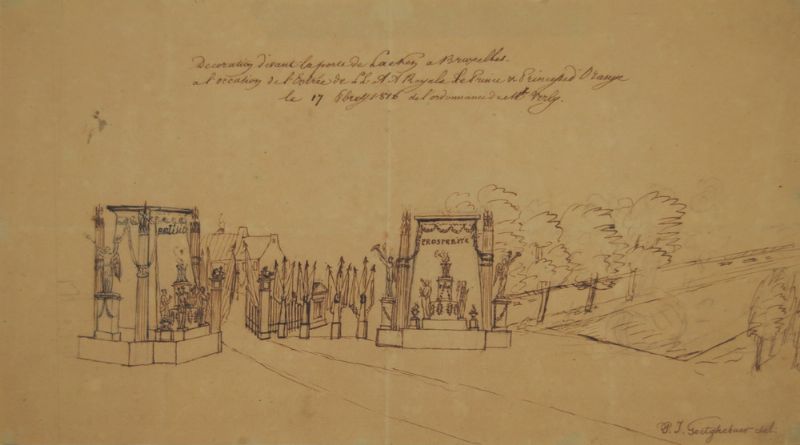 Decoration devant la porte de Laeken a Bruxelles.
a l'occation de l'Entrée de LL A A Royals Le Prince & Princesse d'Orange
le 17 8bre 1816 de l'ordonnance de Mr. Verly.
PROSPERITE
P. J. Goetghebuer del.